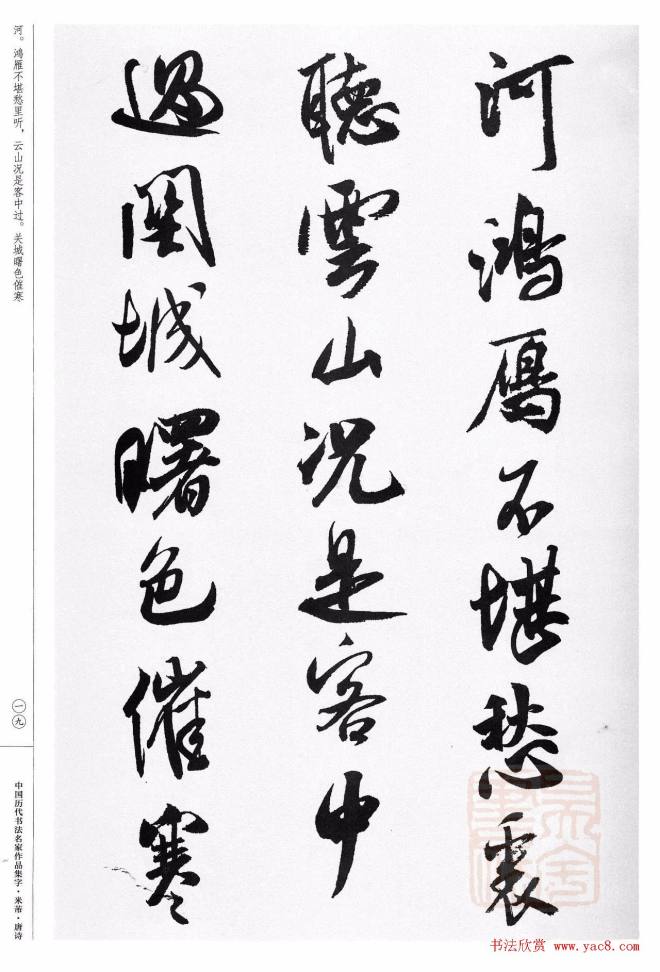 河鸿雁不堪愁裏
聽雲山况是客中
過関城曙色催寒
河。鸿雁不堪愁里听，云山况是客中过。关城曙色催寒
一九
中国历代书法名家作品集字·米芾·唐诗
书法欣赏 www.yac8.com